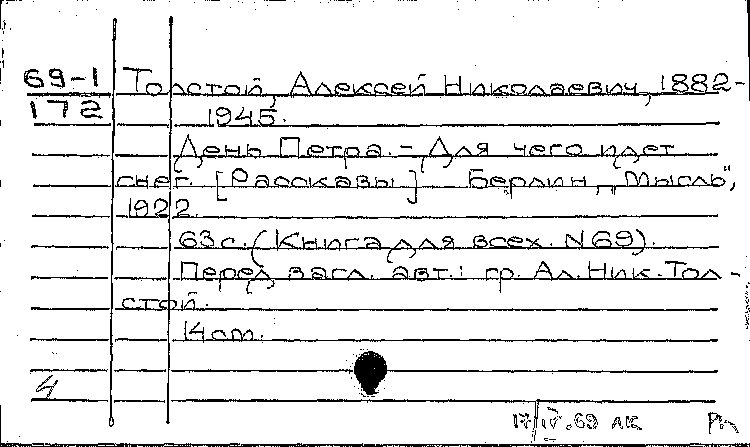 69-1 Толстой, Алексей Николаевич, 1882-
172 1945.
День Петра. - Для чего идет
снег. [Рассказы] Берлин, „Мысль“,
1922.
63с. (Книга для всех. N69).
Перед загл. авт.: гр. Ал. Ник. Тол-
стой.
14cm.
4
17/IV.69 АК